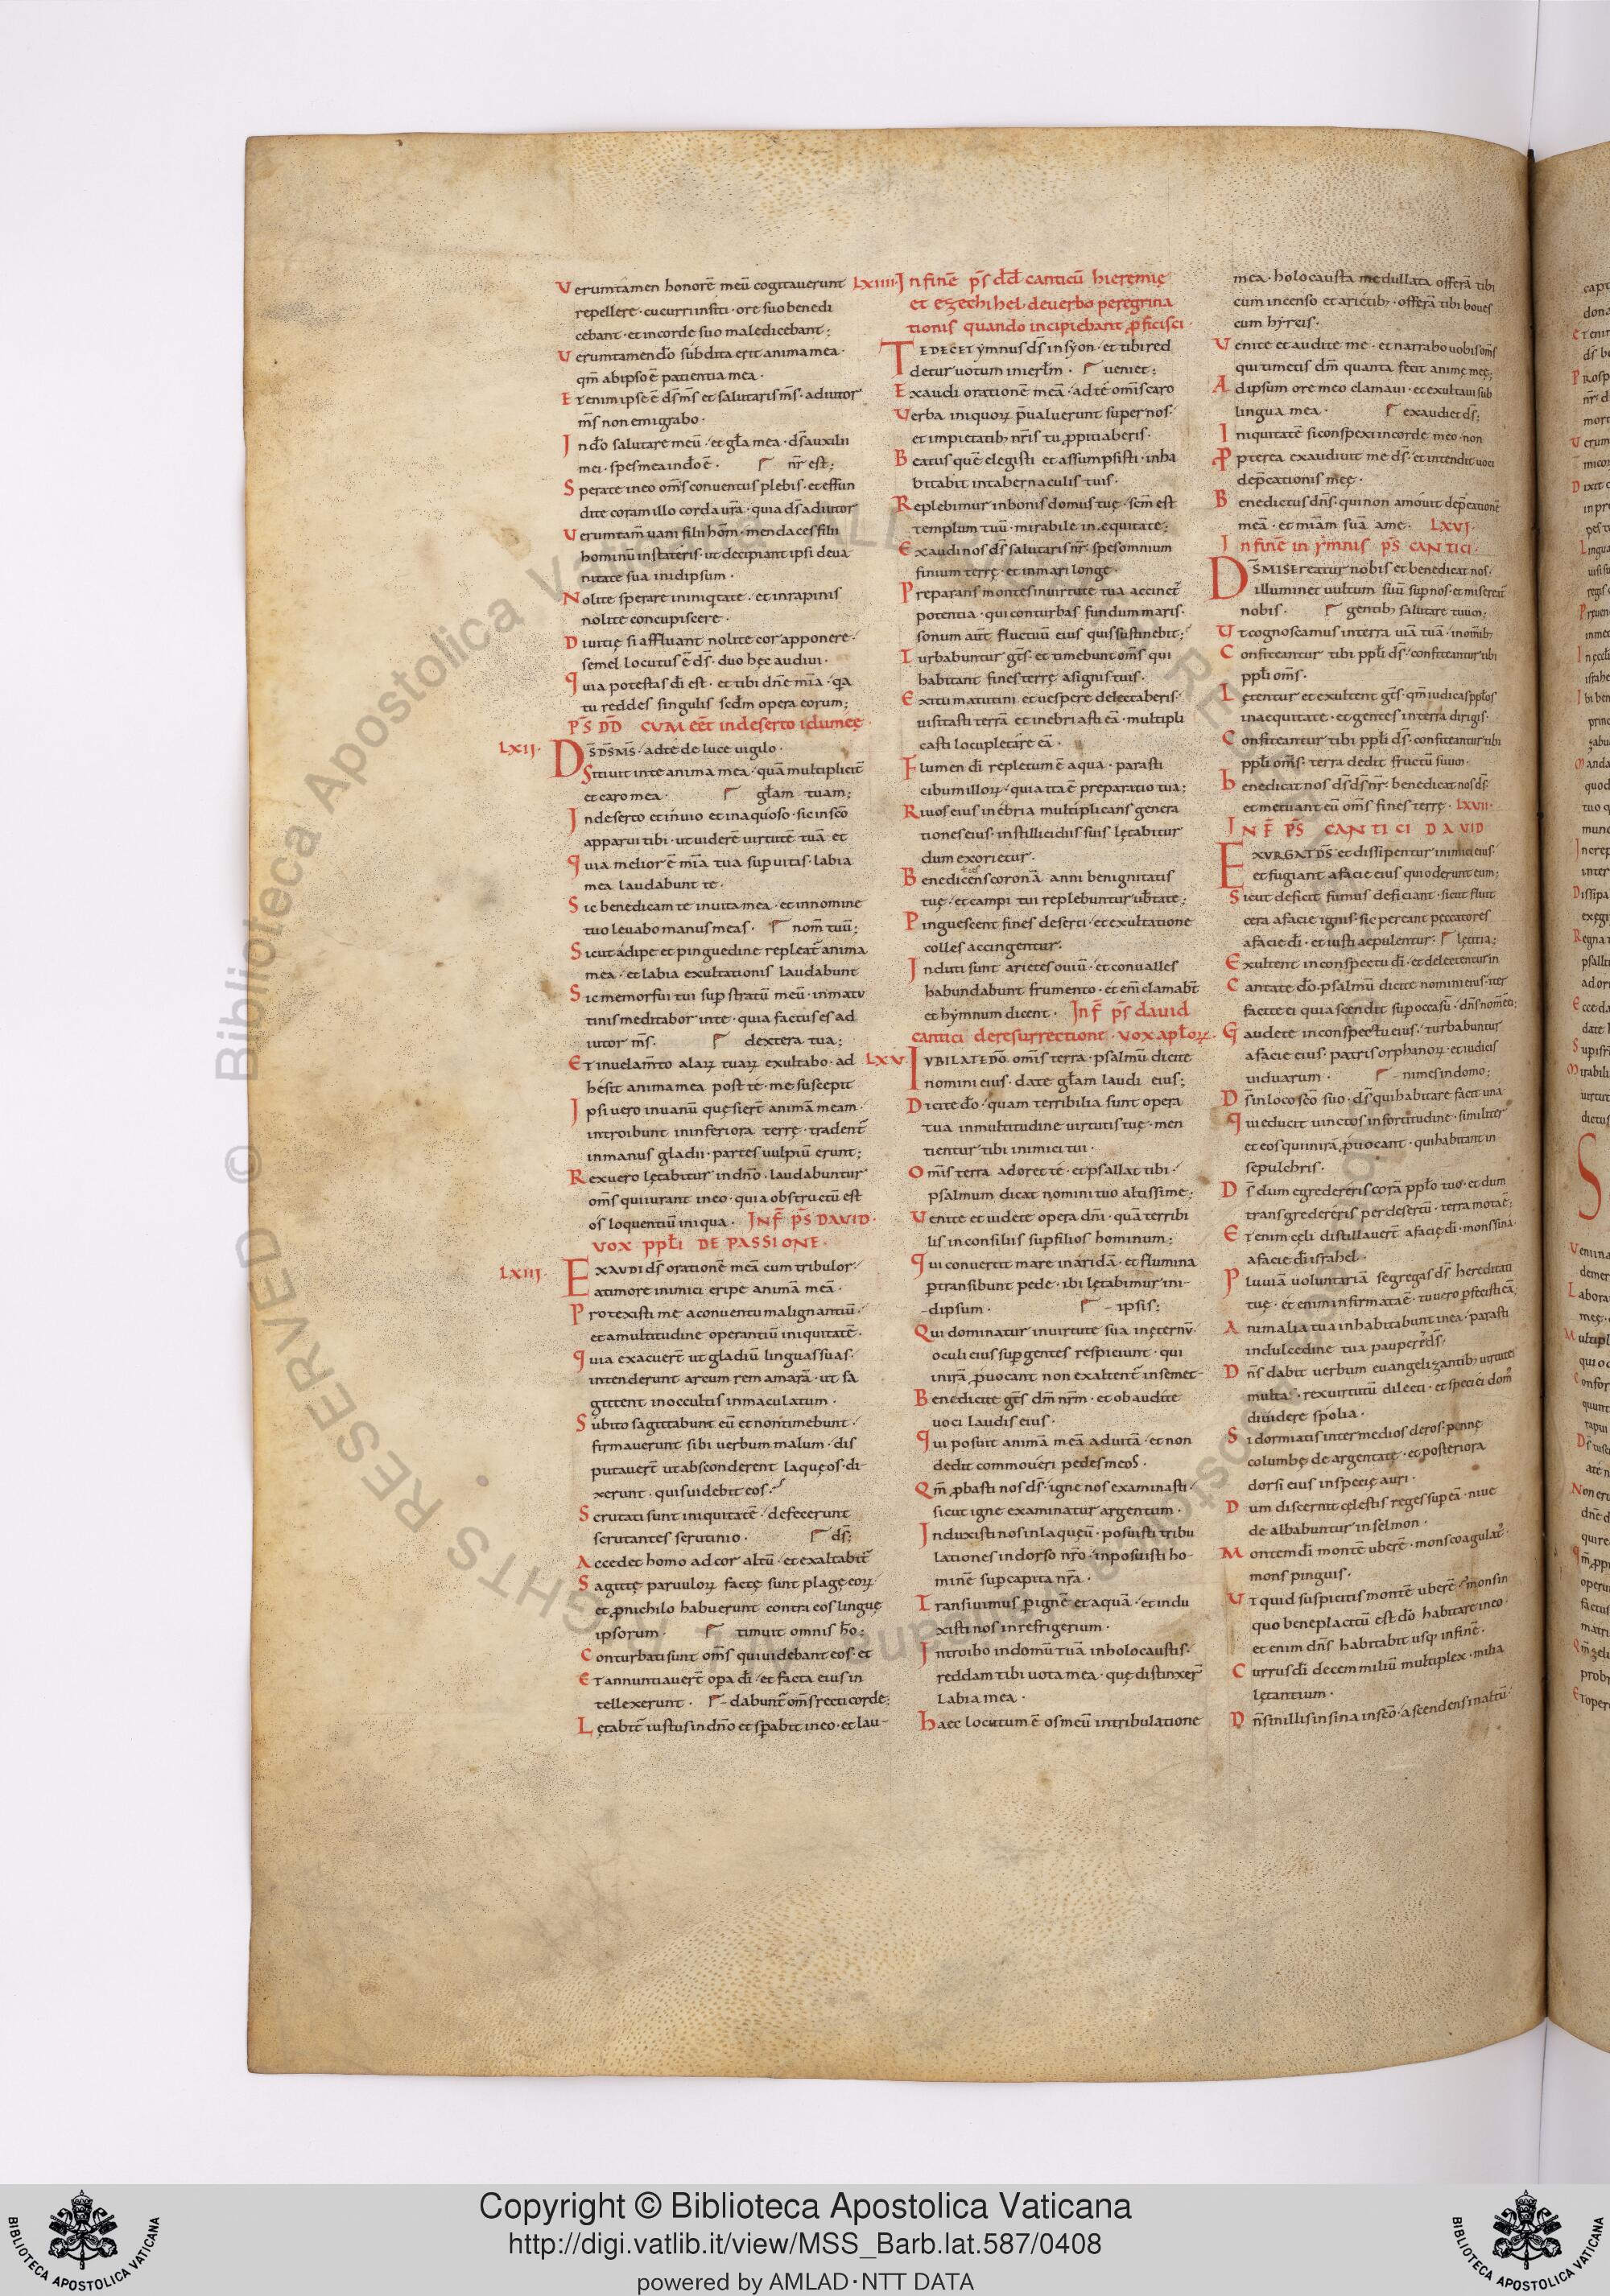 Verumtamen honorē meū cogitauerunt
repellere · cucurri insiti · ore suo benedi
cebant · et incorde suo maledicebant ;
Verumtamen do̅ subdita erit anima mea ·
qm̅ ab ipso ē patientia mea ·
Etenim ipse ē ds̅ ms̅ et salutaris ms̅ · adiutor
ms̅ non emigrabo ·
In do̅ salutare meū · et gl̅a mea · ds̅ auxilii
mei · spes mea in do̅ ē · nr̅ est ;
Sperate in eo om̅s conuentus plebis · et effun
dite coram illo corda ur̅a · quia ds̅ adiutor
Verumtam̅ uani filii hom̅ · mendaces filii
hominū in stateris · ut decipiant ipsi de ua
nitate sua in idipsum ·
Nolite sperare in iniqitate · et in rapinis
nolite concupiscere ·
Diuitię si affluant nolite cor apponere ·
semel locutus ē ds̅ · duo hęc audiui ·
quia potestas di̅ est · et tibi dn̅e mi̅a · qa
tu reddes singulis scdm̅ opera eorum ;
PS̅ DD̅ CUM EET̅ in deserto idumęę ·
LXII · DS̅ DS̅ MS̅ · ad te de luce uigilo ·
Sitiuit in te anima mea · quā multiplicit̅
et caro mea · gl̅am tuam ;
In deserto et inuio et inaquoso · sic in sc̅o
apparui tibi · ut uiderē uirtutē tuā et
quia melior ē mi̅a tua sup uitas · labia
mea laudabunt te ·
Sic benedicam te in uita mea · et in nomine
tuo leuabo manus meas · nom̅ tuū ;
Sicut adipe et pinguedine repleat̅ anima
mea · et labia exultationis laudabunt
Sic memor fui tui sup stratū meū · in matu
tinis meditabor in te · quia factus es ad
iutor ms̅ · dextera tua ;
Et in uelam̅to alaꝝ tuaꝝ exultabo · ad
hesit anima mea post te · me suscepit
Ipsi uero in uanū quęsier̅t animā meam ·
introibunt in inferiora terrę · tradent̅
in manus gladii · partes uulpiū erunt ;
Rex uero lętabitur in dn̅o · laudabuntur
om̅s qui iurant in eo · quia obstructū est
os loquentiū iniqua · INF̅ PS̅ DAVID ·
VOX PPL̅I DE PASSIONE ·
LXIII · EXAVDI ds̅ orationē meā cum tribulor ·
a timore inimici eripe animā meā ·
Protexisti me a conuentu malignantiū ·
et a multitudine operantiū iniquitatē ·
quia exacuer̅t ut gladiū linguas suas ·
intenderunt arcum rem amarā · ut sa
gittent in occultis inmaculatum ·
Subito sagittabunt eū et non timebunt ·
firmauerunt sibi uerbum malum · dis
putauer̅t ut absconderent laqueos · di-
xerunt · quis uidebit eos ·
Scrutati sunt iniquitatē · defecerunt
scrutantes scrutinio · ds̅ ;
Accedet homo ad cor altū · et exaltabit̅
Sagittę paruuloꝝ factę sunt plagę eoꝝ
et ꝓ nichilo habuerunt contra eos linguę
ipsorum · timuit omnis ho̅ ;
Conturbati sunt om̅s qui uidebant eos · et
Et annuntiauer̅t opa di̅ · et facta eius in
tellexerunt · - dabunt̅ om̅s recti corde ;
Lętabit̅ iustus in dn̅o et spabit in eo · et lau-
LXIIII · In finē ps̅ dd̅ canticū hieremię
et ezechihel · de uerbo peregrina
tionis quando incipiebant ꝓficisci ·
TE DECET ymnus ds̅ in syon · et tibi red
detur uotum in ierl̅m · ueniet ;
Exaudi orationē meā · ad te om̅is caro
Verba iniquoꝝ pu̅aluerunt super nos ·
et impietatib; nr̅is tu ꝓpitiaberis ·
Beatus quē elegisti et assumpsisti · inha
bitabit in tabernaculis tuis ·
Replebimur in bonis domus tuę · scm̅ est
templum tuū · mirabile in equitate ;
Exaudi nos ds̅ salutaris nr̅ · spes omnium
finium terrę · et in mari longe ·
Preparans montes in uirtute tua accinct̅
potentia · qui conturbas fundum maris ·
sonum aūt fluctuū eius quis sustinebit ;
Turbabuntur gt̅s · et timebunt om̅s qui
habitant fines terrę a signis tuis ·
Exitu matutini et uespere delectaberis ·
uisitasti terrā et inebriasti eā · multipli
casti locupletare eā ·
Flumen di̅ repletum ē aqua · parasti
cibum illoꝝ · quia ita ē preparatio tua ;
Riuos eius inebria multiplicans genera
tiones eius · in stillicidiis suis lętabitur
dum exorietur ·
Benedicens coronā anni benignitatis
tuę · et campi tui replebuntur ub̅tate ;
Pinguescent fines deserti · et exultatione
colles accingentur ·
Induti sunt arietes ouiū · et conualles
habundabunt frumento · et eni̅ clamab̅t
et hymnum dicent · Inf̅ ps̅ david
cantici de resurrectione · vox apl̅oꝝ ·
LXV · IVBILATE DO̅ om̅is terra · psalmū dicite
nomini eius · date gl̅am laudi eius ;
Dicite do̅ · quam terribilia sunt opera
tua in multitudine uirtutis tuę · men
tientur tibi inimici tui ·
Om̅is terra adoret te · et psallat tibi ·
psalmum dicat nomini tuo altissime ;
Venite et uidete opera dn̅i · quā terribi
lis in consiliis sup filios hominum ;
qui conuertit mare in aridā · et flumina
ꝑtransibunt pede · ibi lętabimur in i-
-dipsum · - ipsis ;
Qui dominatur in uirtute sua in ęternū ·
oculi eius sup gentes respiciunt · qui
in irā ꝓuocant non exaltent̅ in semet-
Benedicite gt̅s dm̅ nr̅m · et obaudite
uoci laudis eius ·
qui posuit animā meā ad uitā · et non
dedit commoueri pedes meos ·
Qm̅ ꝓbasti nos ds̅ · igne nos examinasti ·
sicut igne examinatur argentum ·
Induxisti nos in laqueū · posuisti tribu
lationes in dorso nr̅o · inposuisti ho-
minē sup capita nr̅a ·
Transiuimus ꝑ ignē et aquā · et indu
xisti nos in refrigerium ·
Introibo in domū tuā in holocaustis ·
reddam tibi uota mea · quę distinxer̅
labia mea ·
haec locutum ē os meū in tribulatione
mea · holocausta medullata offerā tibi
cum incenso et arietib; · offerā tibi boues
cum hyrcis ·
Venite et audite me · et narrabo uobis om̅s
qui timetis dm̅ quanta fecit animę męę ;
Ad ipsum ore meo clamaui · et exultaui sub
lingua mea · exaudiet ds̅ ;
Iniquitatē si conspexi in corde meo · non
ꝓpterea exaudiuit me ds̅ · et intendit uoci
dep̅cationis męę ·
Benedictus dn̅s · qui non amouit dep̅cationē
meā · et mi̅am suā a me · LXVI ·
In finē in ymnis ps̅ CANTICI ·
DS̅ MISEreatur nobis et benedicat nos ·
illuminet uultum suū sup nos · et misereat̅
nobis · gentib; salutare tuum ;
Vt cognoscamus in terra uiā tuā · in om̅ib;
Confiteantur tibi ppl̅i ds̅ · confiteantur tibi
ppl̅i om̅s ·
Lętentur et exultent gt̅s · qm̅ iudicas ppl̅os
in aequitate · et gentes in terra dirigis ·
Confiteantur tibi ppl̅i ds̅ · confiteantur tibi
ppl̅i om̅s · terra dedit fructū suum ·
benedicat nos ds̅ ds̅ nr̅ · benedicat nos ds̅ ·
et metuant eū om̅s fines terrę · LXVII ·
INF̅ PS̅ CANTICI DAVID
EXVRGAT DS̅ et dissipentur inimici eius ·
et fugiant a facie eius qui oderunt eum ;
Sicut deficit fumus deficiant · sicut fluit
cera a facie ignis · sic pereant peccatores
a facie di̅ · et iusti aepulentur · lętitia ;
Exultent in conspectu di̅ · et delectentur in
Cantate do̅ · psalmū dicite nomini eius · iter
facite ei qui ascendit sup occasū · dn̅s nom̅ ē ei ;
Gaudete in conspectu eius · turbabuntur
a facie eius · patris orphanoꝝ · et iudicis
uiduarum · - nimes in domo ;
Ds̅ in loco sc̅o suo · ds̅ qui habitare facit una
qui educit uinctos in fortitudine · similiter
et eos qui in irā ꝓuocant · qui habitant in
sepulchris ·
Ds̅ dum egredereris corā ppl̅o tuo · et dum
transgredereris per desertū · terra mota ē ;
Etenim cęli distillauer̅t a facię di̅ · mons sina
a facie di̅ israhel ·
Pluuiā uoluntariā segregas ds̅ hereditati
tuę · et enim infirmata ē · tu uero ꝑfecisti eā ;
Animalia tua inhabitabunt in ea · parasti
in dulcedine tua pauperi ds̅ ·
Dn̅s dabit uerbum euangelizantib; uirtute
multa · rex uirtutū dilecti · et speciei dom᷒
diuidere spolia ·
Si dormiatis inter medios cleros · pennę
columbę de argentatę · et posteriora
dorsi eius in specię auri ·
Dum discernit cęlestis reges sup eā · niue
de albabuntur in selmon ·
Montem di̅ montē uberē · mons coagulat᷒ ·
mons pinguis ·
Vt quid suspicitis montē uberē · mons in
quo beneplacitū est do̅ habitare in eo ·
et enim dn̅s habitabit usq; in finē ·
Currus di̅ decem miliū multiplex · milia
lętantium ·
Dn̅s in illis in sina in sc̅o · ascendens in altū ·
Copyright © Biblioteca Apostolica Vaticana
http://digi.vatlib.it/view/MSS_Barb.lat.587/0408
powered by AMLAD · NTT DATA
BIBLIOTECA APOSTOLICA VATICANA
BIBLIOTECA APOSTOLICA VATICANA